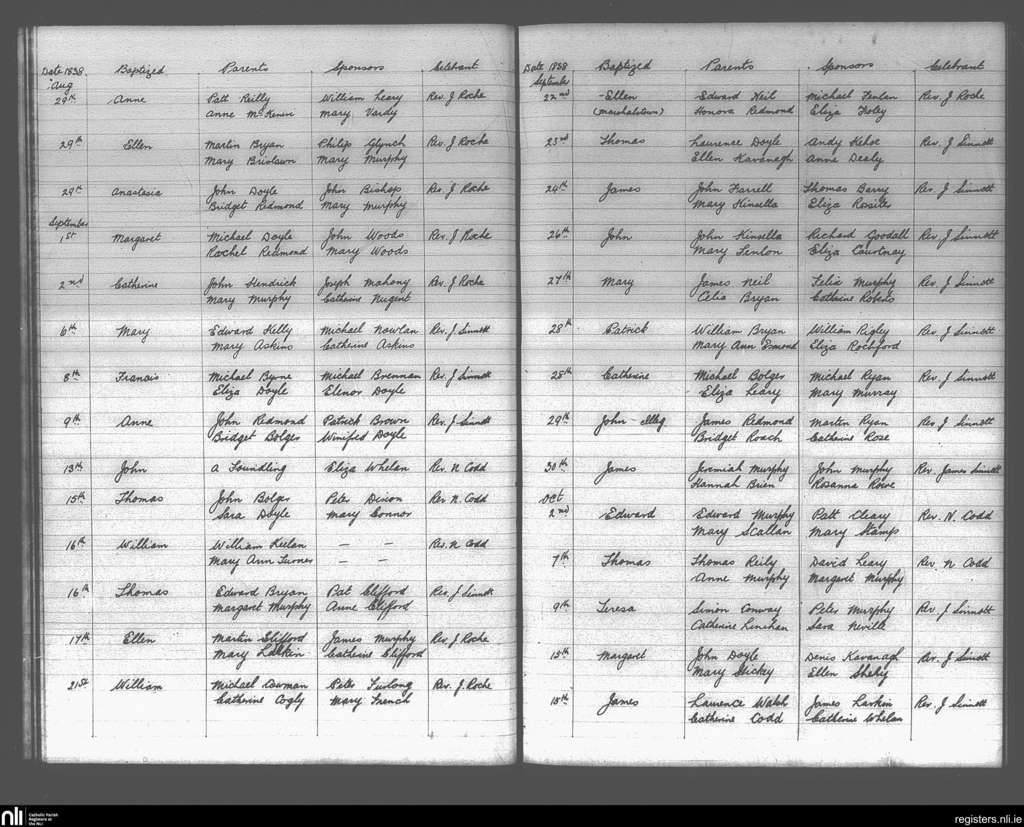 Date 1838. Baptized Parents Sponsors Celebrant
Aug
29th Anne Patt Reilly William Leary Rev. J Roche
Anne McKenn Mary Vardy
29th Ellen Martin Bryan Philip Glynch Rev. J Roche
Mary Brislawn Mary Murphy
29th Anastasia John Doyle John Bishop Rev. J Roche
Bridget Redmond Mary Murphy
September
1st Margaret Michael Doyle John Woods Rev. J Roche
Rachel Redmond Mary Woods
2nd Catherine John Hendrick Joseph Mahony Rev. J Roche
Mary Murphy Catherine Nugent
6th Mary Edward Kelly Michael Nowlan Rev. J Sinnott
Mary Askins Catherine Askins
8th Francis Michael Byrne Michael Brennan Rev. J Sinnott
Eliza Doyle Elenor Doyle
9th Anne John Redmond Patrick Brown Rev. J Sinnott
Bridget Bolger Winifred Doyle
13th John A Foundling Eliza Whelan Rev. N Codd
15th Thomas John Bolger Peter Dixon Rev N Codd
Sara Doyle Mary Connor
16th William William Keelan — — Rev. N Codd
Mary Ann Turner — —
16th Thomas Edward Bryan Pat Clifford Rev. J Sinnott
Margaret Murphy Anne Clifford
17th Ellen Martin Clifford James Murphy Rev. J Roche
Mary Larkin Catherine Clifford
21st William Michael Cowman Peter Furlong Rev. J. Roche
Catherine Cogly Mary French
Date 1838 Baptized Parents Sponsors Celebrant
September
22nd Ellen Edward Neil Michael Fenlon Rev. J Roche
(Marshalstown) Honora Redmond Eliza Foley
23rd Thomas Laurence Doyle Andy Kehoe Rev. J Sinnott
Ellen Kavanagh Anne Dealy
24th James John Farrell Thomas Barry Rev. J Sinnott
Mary Kinsella Eliza Rositer
26th John John Kinsella Richard Goodall Rev J Sinnott
Mary Fenlon Eliza Courtnay
27th Mary James Neil Felix Murphy Rev. J Sinnott
Celia Bryan Catherine Roberts
28th Patrick William Bryan William Rigley Rev J Sinnott
Mary Ann Esmond Eliza Rochford
28th Catherine Michael Bolger Michael Ryan Rev J Sinnott
Eliza Leary Mary Murray
29th John - illeg James Redmond Martin Ryan Rev J Sinnott
Bridget Roach Catherine Rose
30th James Jeremiah Murphy John Murphy Rev. James Sinnott
Hannah Brien Rosanna Rowe
Oct
2nd Edward Edward Murphy Patt Cleary Rev. N. Codd
Mary Scallan Mary Stamps
7th Thomas Thomas Reily David Leary Rev. N Codd
Anne Murphy Margaret Murphy
9th Teresa Simon Conway Peter Murphy Rev. J Sinnott
Catherine Linehan Sara Neville
15th Margaret John Doyle Denis Kavanagh Rev. J Sinnott
Mary Hickey Ellen Shehy
15th James Laurence Walsh James Larkin Rev. J Sinnott
Catherine Codd Catherine Whelan
nli Catholic Parish
Registers at
the NLI
registers.nli.ie